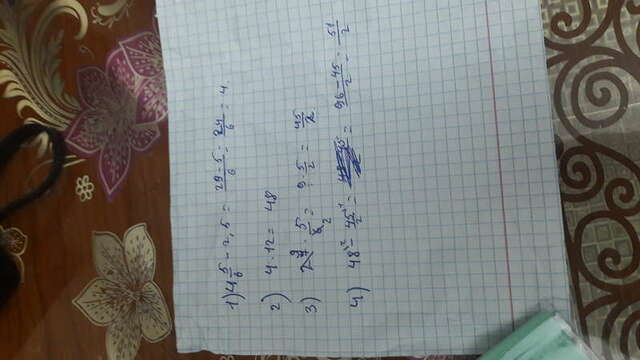 1) 4 5/6 - 2,5 = (29-5)/6 = 24/6 = 4.
2) 4 · 12 = 48
3) 27 · 5/6 = 9·5/2 = 45/2
4) 48 - 45/2 = (96-45)/2 = 51/2